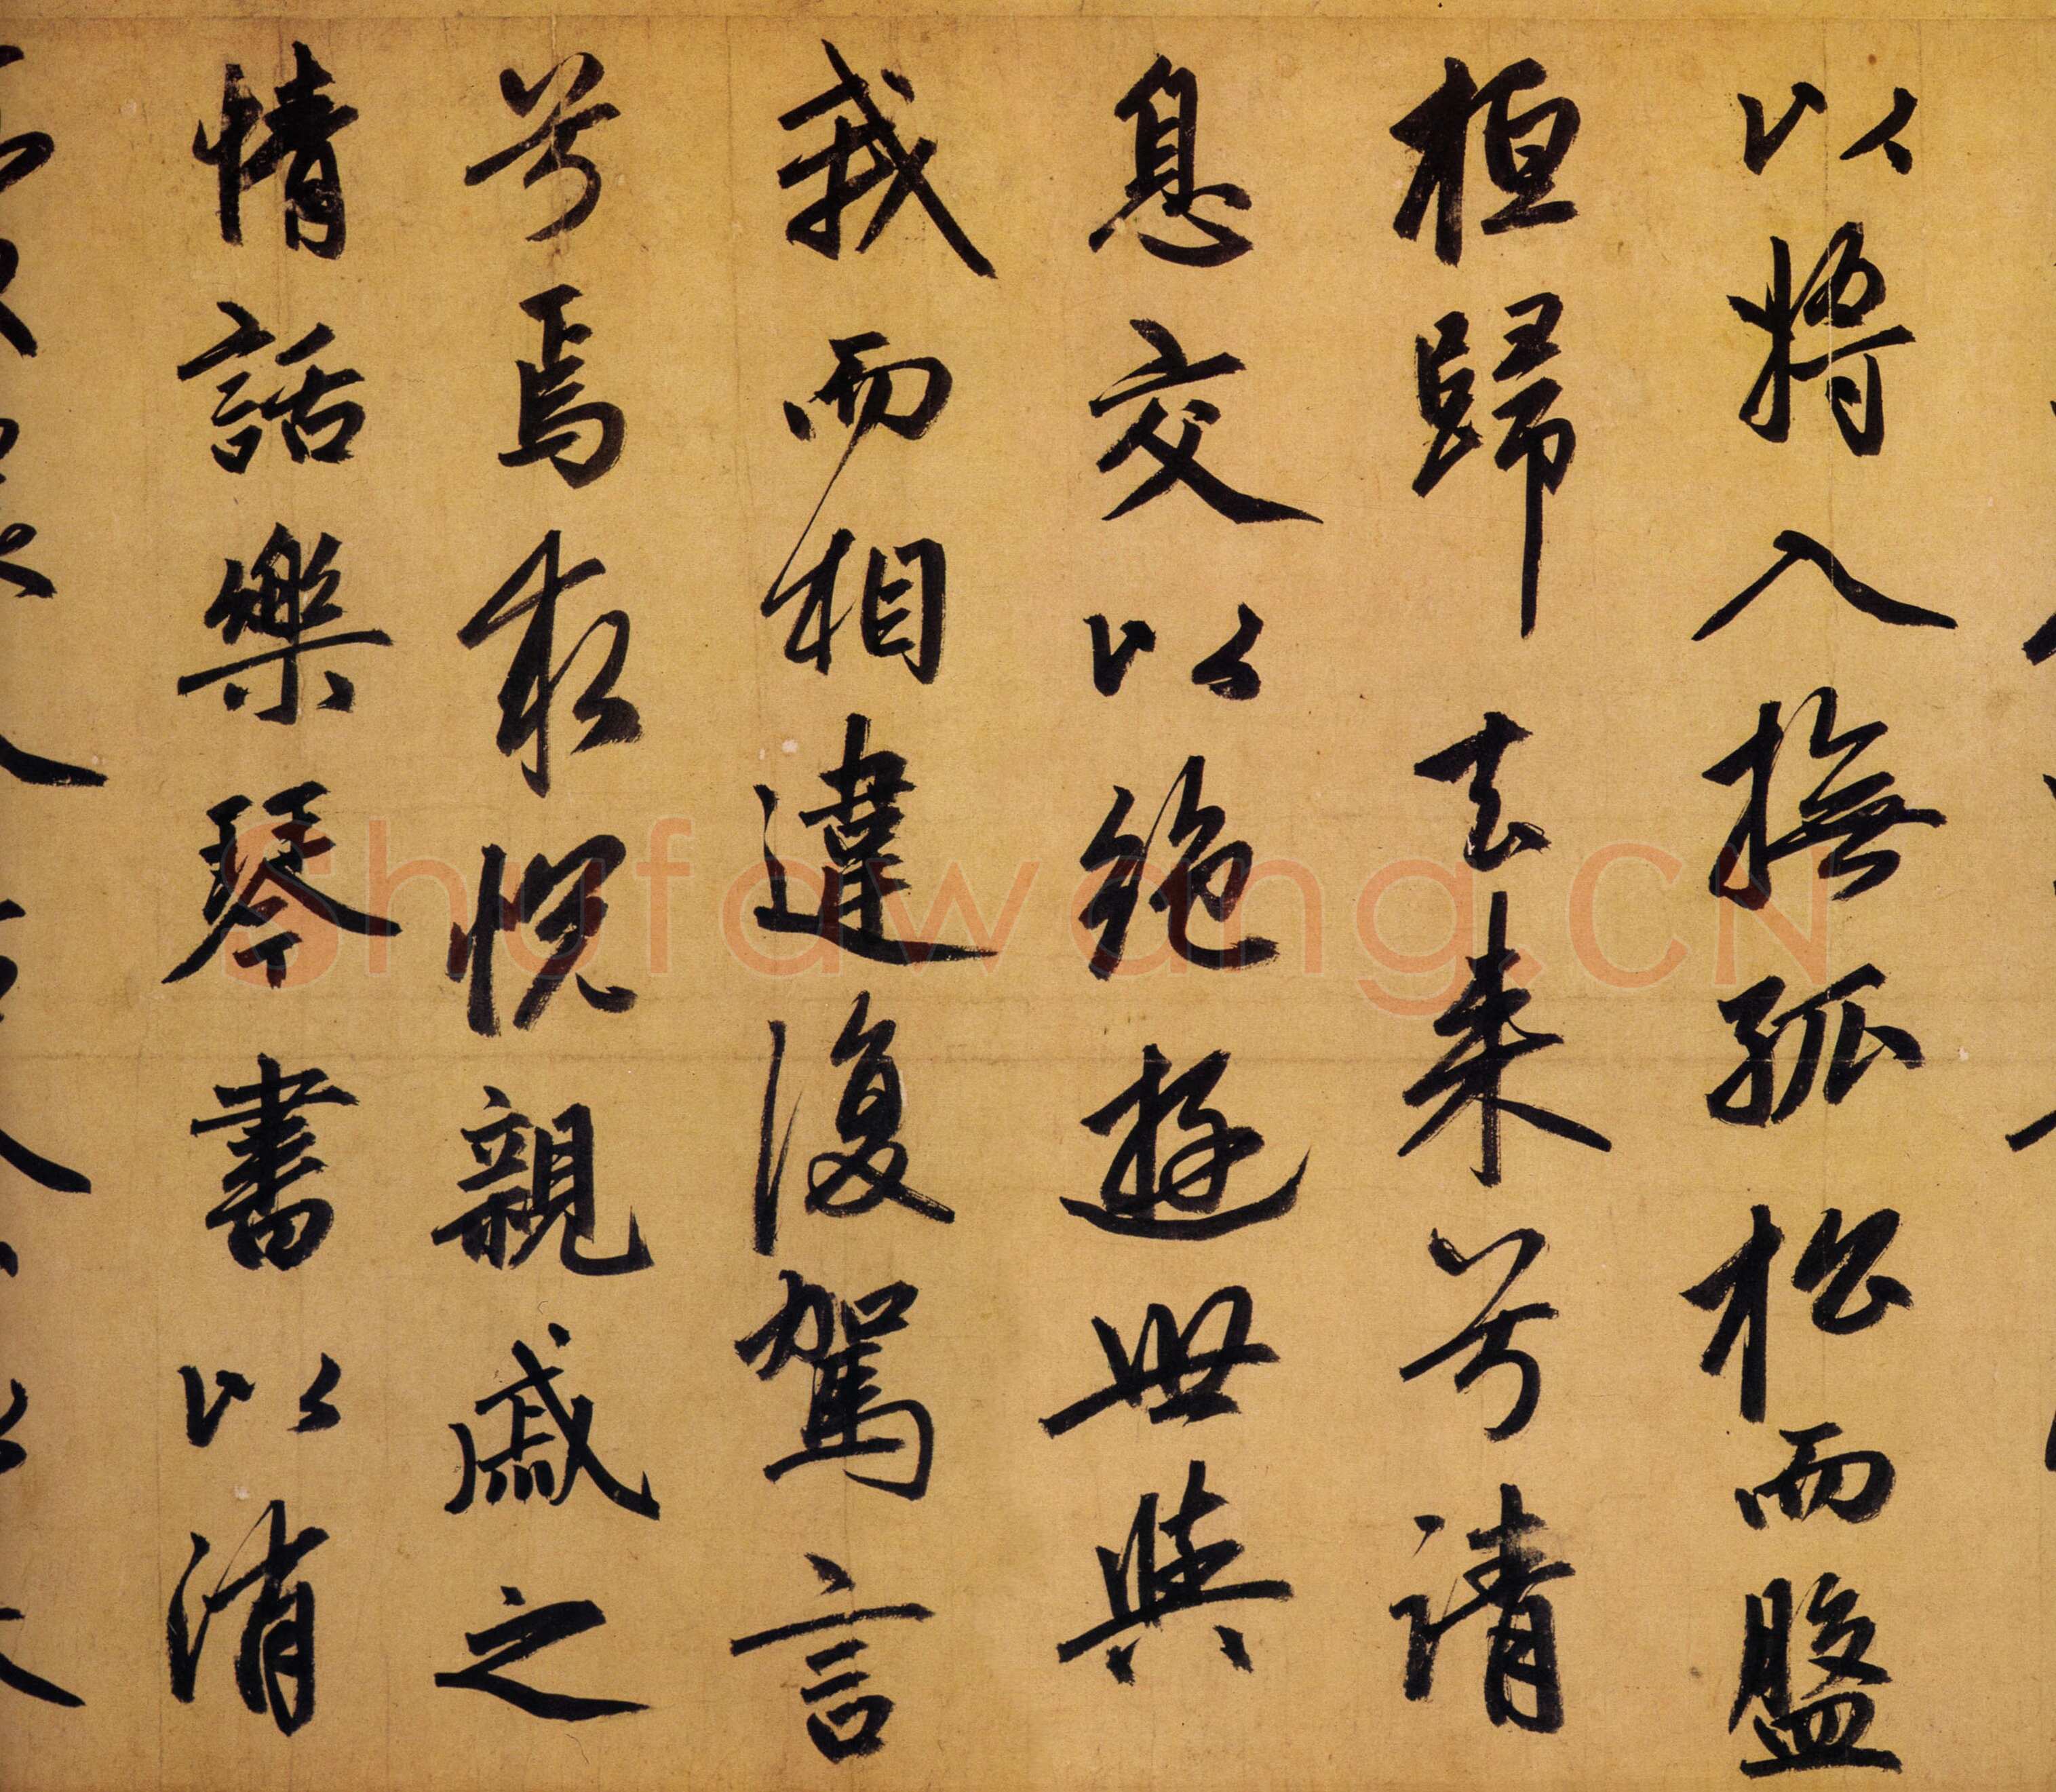 以將入撫孤松而盤
桓歸去来兮請
息交以絶遊世與
我而相違復駕言
兮焉求悦親戚之
情話樂琴書以消
Shufawang.CN